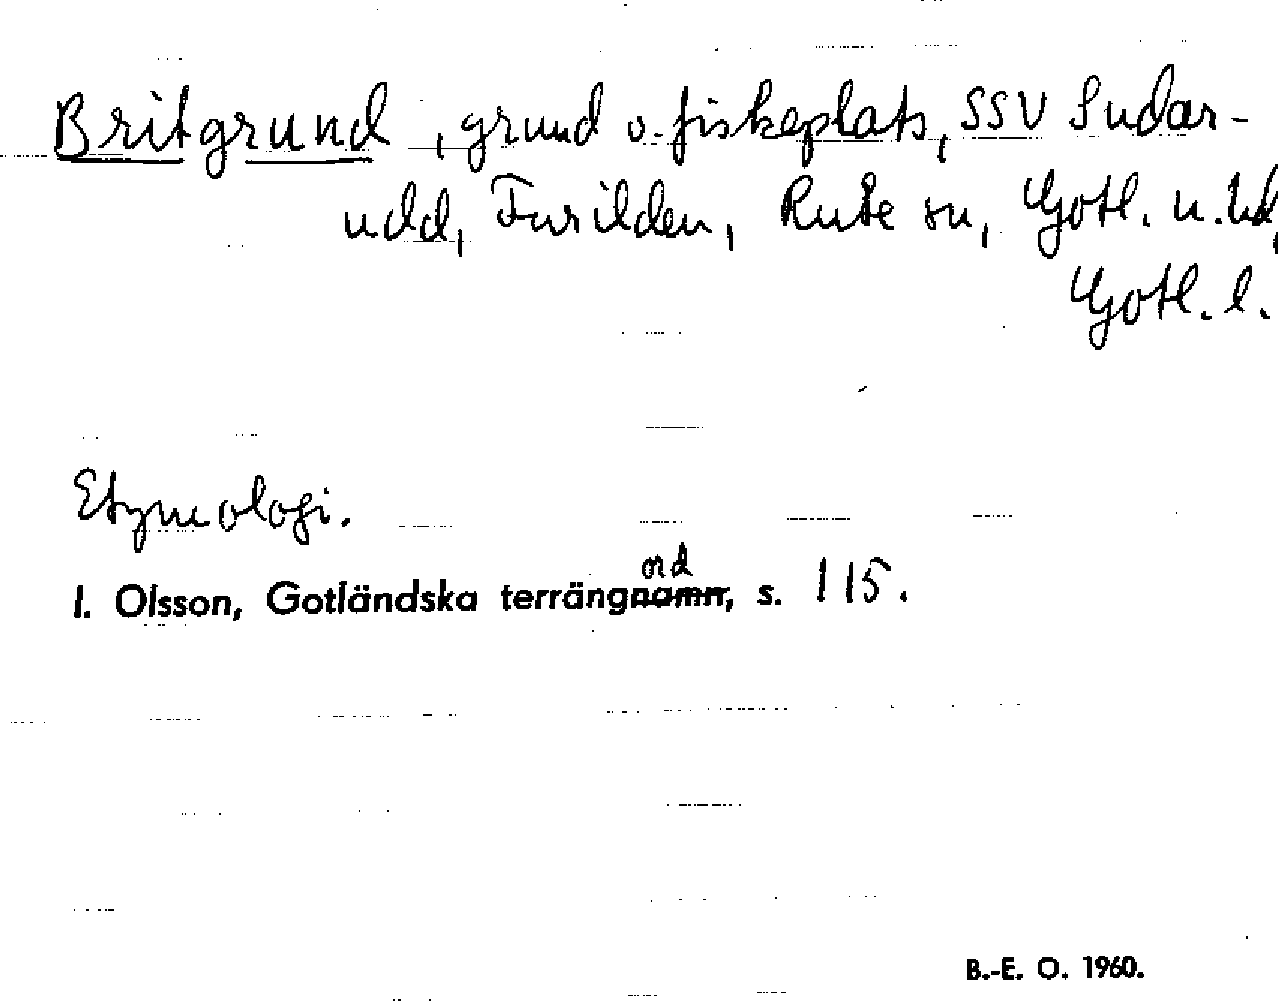 Britgrund, grund o. fiskeplats, SSV Sudar-
udd, Furilden, Rute sn, Gotl. n. hd,
Gotl. l.
Etymologi.
ord
I. Olsson, Gotländska terrängnamn, s. 115.
B.-E. O. 1960.